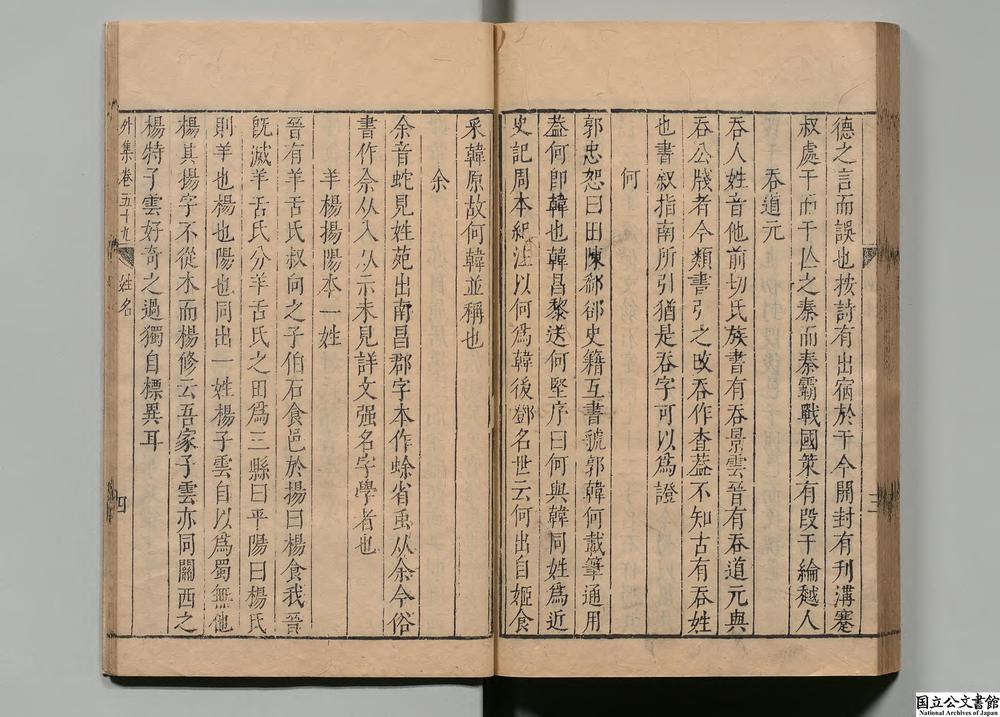 德之言而誤也按詩有出宿於干今開封有刊溝蹇
叔處干而干亾之秦而秦霸戰國策有段干綸越人
吞道元
吞人姓音他前切氏族書有吞景雲晉有吞道元與
吞公牋者今類書引之改吞作查葢不知古有吞姓
也書叙指南所引猶是吞字可以爲證
何
郭忠恕曰田陳郗郤史籍互書虢郭韓何載筆通用
葢何卽韓也韓昌黎送何堅序曰何與韓同姓爲近
史記周本紀注以何爲韓後鄧名世云何出自姬食
采韓原故何韓並稱也
余
余音蛇見姓苑出南昌郡字本作蜍省䖝从余今俗
書作佘从入从示未見詳文强名字學者也
羊楊揚陽本一姓
晉有羊舌氏叔向之子伯石食邑於揚曰楊食我晉
旣滅羊舌氏分羊舌氏之田爲三縣曰平陽曰楊氏
則羊也楊也陽也同出一姓楊子雲自以爲蜀無他
楊其揚字不從木而楊修云吾家子雲亦同關西之
楊特子雲好奇之過獨自標異耳
外集卷二五十九 姓名
三
四
国立公文書館
National Archives of Japan